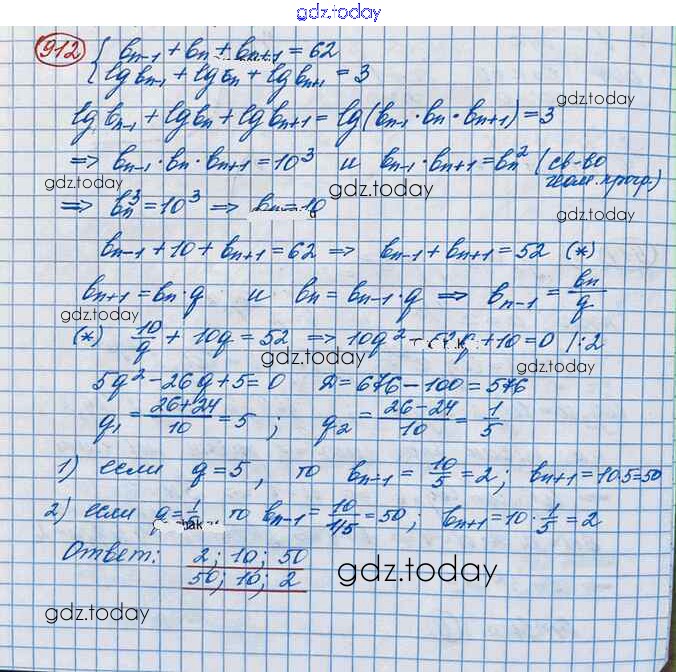 gdz.today
912 { bn-1 + bn + bn+1 = 62
lg bn-1 + lg bn + lg bn+1 = 3
gdz.today
lg bn-1 + lg bn + lg bn+1 = lg(bn-1 · bn · bn+1) = 3
=> bn-1 · bn · bn+1 = 10³ и bn-1 · bn+1 = bn² (св-во
геом. прогр.)
gdz.today gdz.today
=> bn³ = 10³ => bn = 10
gdz.today
bn-1 + 10 + bn+1 = 62 => bn-1 + bn+1 = 52 (*)
bn+1 = bn · q и bn = bn-1 · q => bn-1 = bn/q
gdz.today
(*) 10/q + 10q = 52 => 10q² - 52q + 10 = 0 /:2
gdz.today gdz.today
5q² - 26q + 5 = 0 D = 676 - 100 = 576
q1 = (26+24)/10 = 5 ; q2 = (26-24)/10 = 1/5
1) если q = 5, то bn-1 = 10/5 = 2; bn+1 = 10·5 = 50
2) если q = 1/5 то bn-1 = 10/1/5 = 50; bn+1 = 10 · 1/5 = 2
Ответ: 2; 10; 50
50; 10; 2
gdz.today
gdz.today